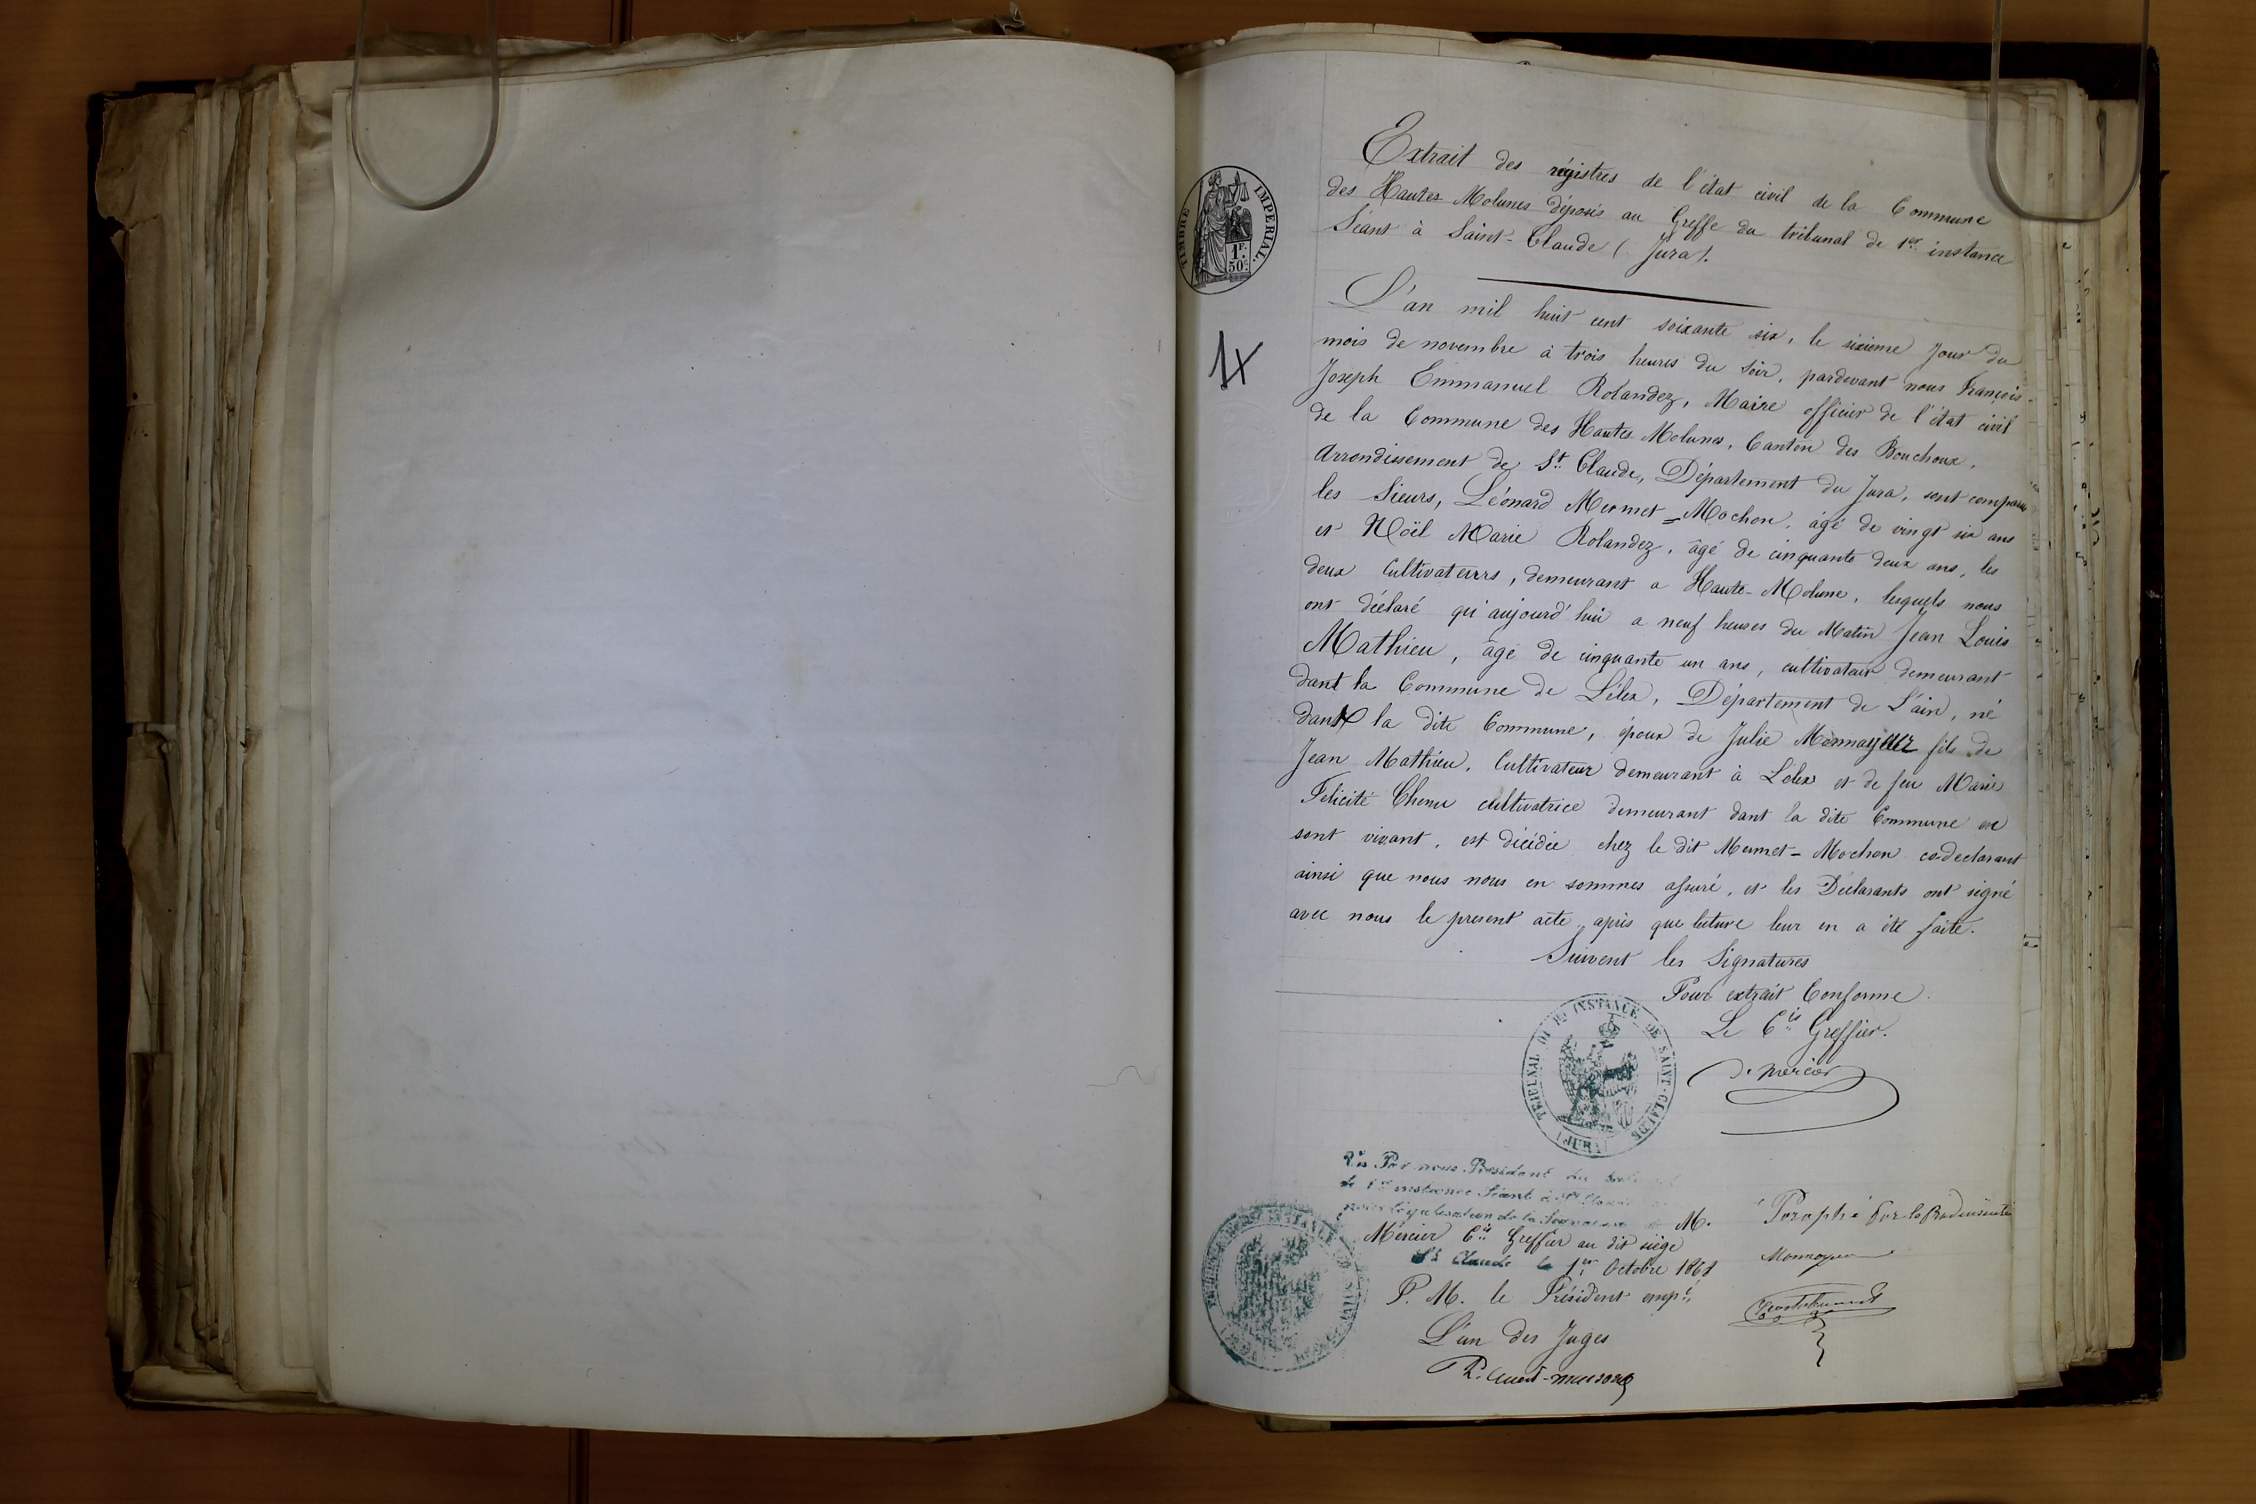 Extrait des régistres de l'état civil de la Commune
des Hautes Molunes déposés au Greffe du tribunal de 1ere instance
Séant à Saint-Claude (Jura).
TIMBRE IMPERIAL.
1F.
50c
L'an mil huit cent soixante six, le sixieme jour du
mois de novembre à trois heures du soir, pardevant nous François-
Joseph Emmanuel Rolandez, Maire officier de l'état civil
de la Commune des Hautes Molunes, Canton des Bouchoux,
Arrondissement de St. Claude, Département du Jura, sont comparus
les Sieurs, Léonard Mermet=Mochon, âgé de vingt six ans
et Noël Marie Rolandez, âgé de cinquante deux ans, les
deux Cultivateurs, demeurant a Haute-Molune, lesquels nous
ont déclaré qu'aujourd'hui a neuf heures du Matin Jean Louis
Mathieu, âgé de cinquante un ans, cultivateur demeurant
dant la Commune de Lélex, Département de L'ain, né
dans la dite Commune, époux de Julie fils de
Jean Mathieu, Cultivateur demeurant à Lélex et de feu Marie
Felicité cultivatrice demeurant dant la dite Commune de
sont vivant, est décédée chez le dit Mermet-Mochon co-declarant
ainsi que nous nous en sommes assuré, et les Déclarants ont signé
avec nous le present acte, après que lecture leur en a été faite.
Suivent les Signatures
Pour extrait Conforme
Le Cis Greffier.
Mercier
TRIBUNAL DE 1re INSTANCE DE SAINT-CLAUDE
(JURA)
Vu Par nous Président du
de 1re instance Séant à St Claude
pour légalisation de la Signature de M.
Mercier Cis Greffier au dit siège
St Claude le 1er Octobre 1868
P. M. le Président empé.
L'un des Juges
Paraphé Par